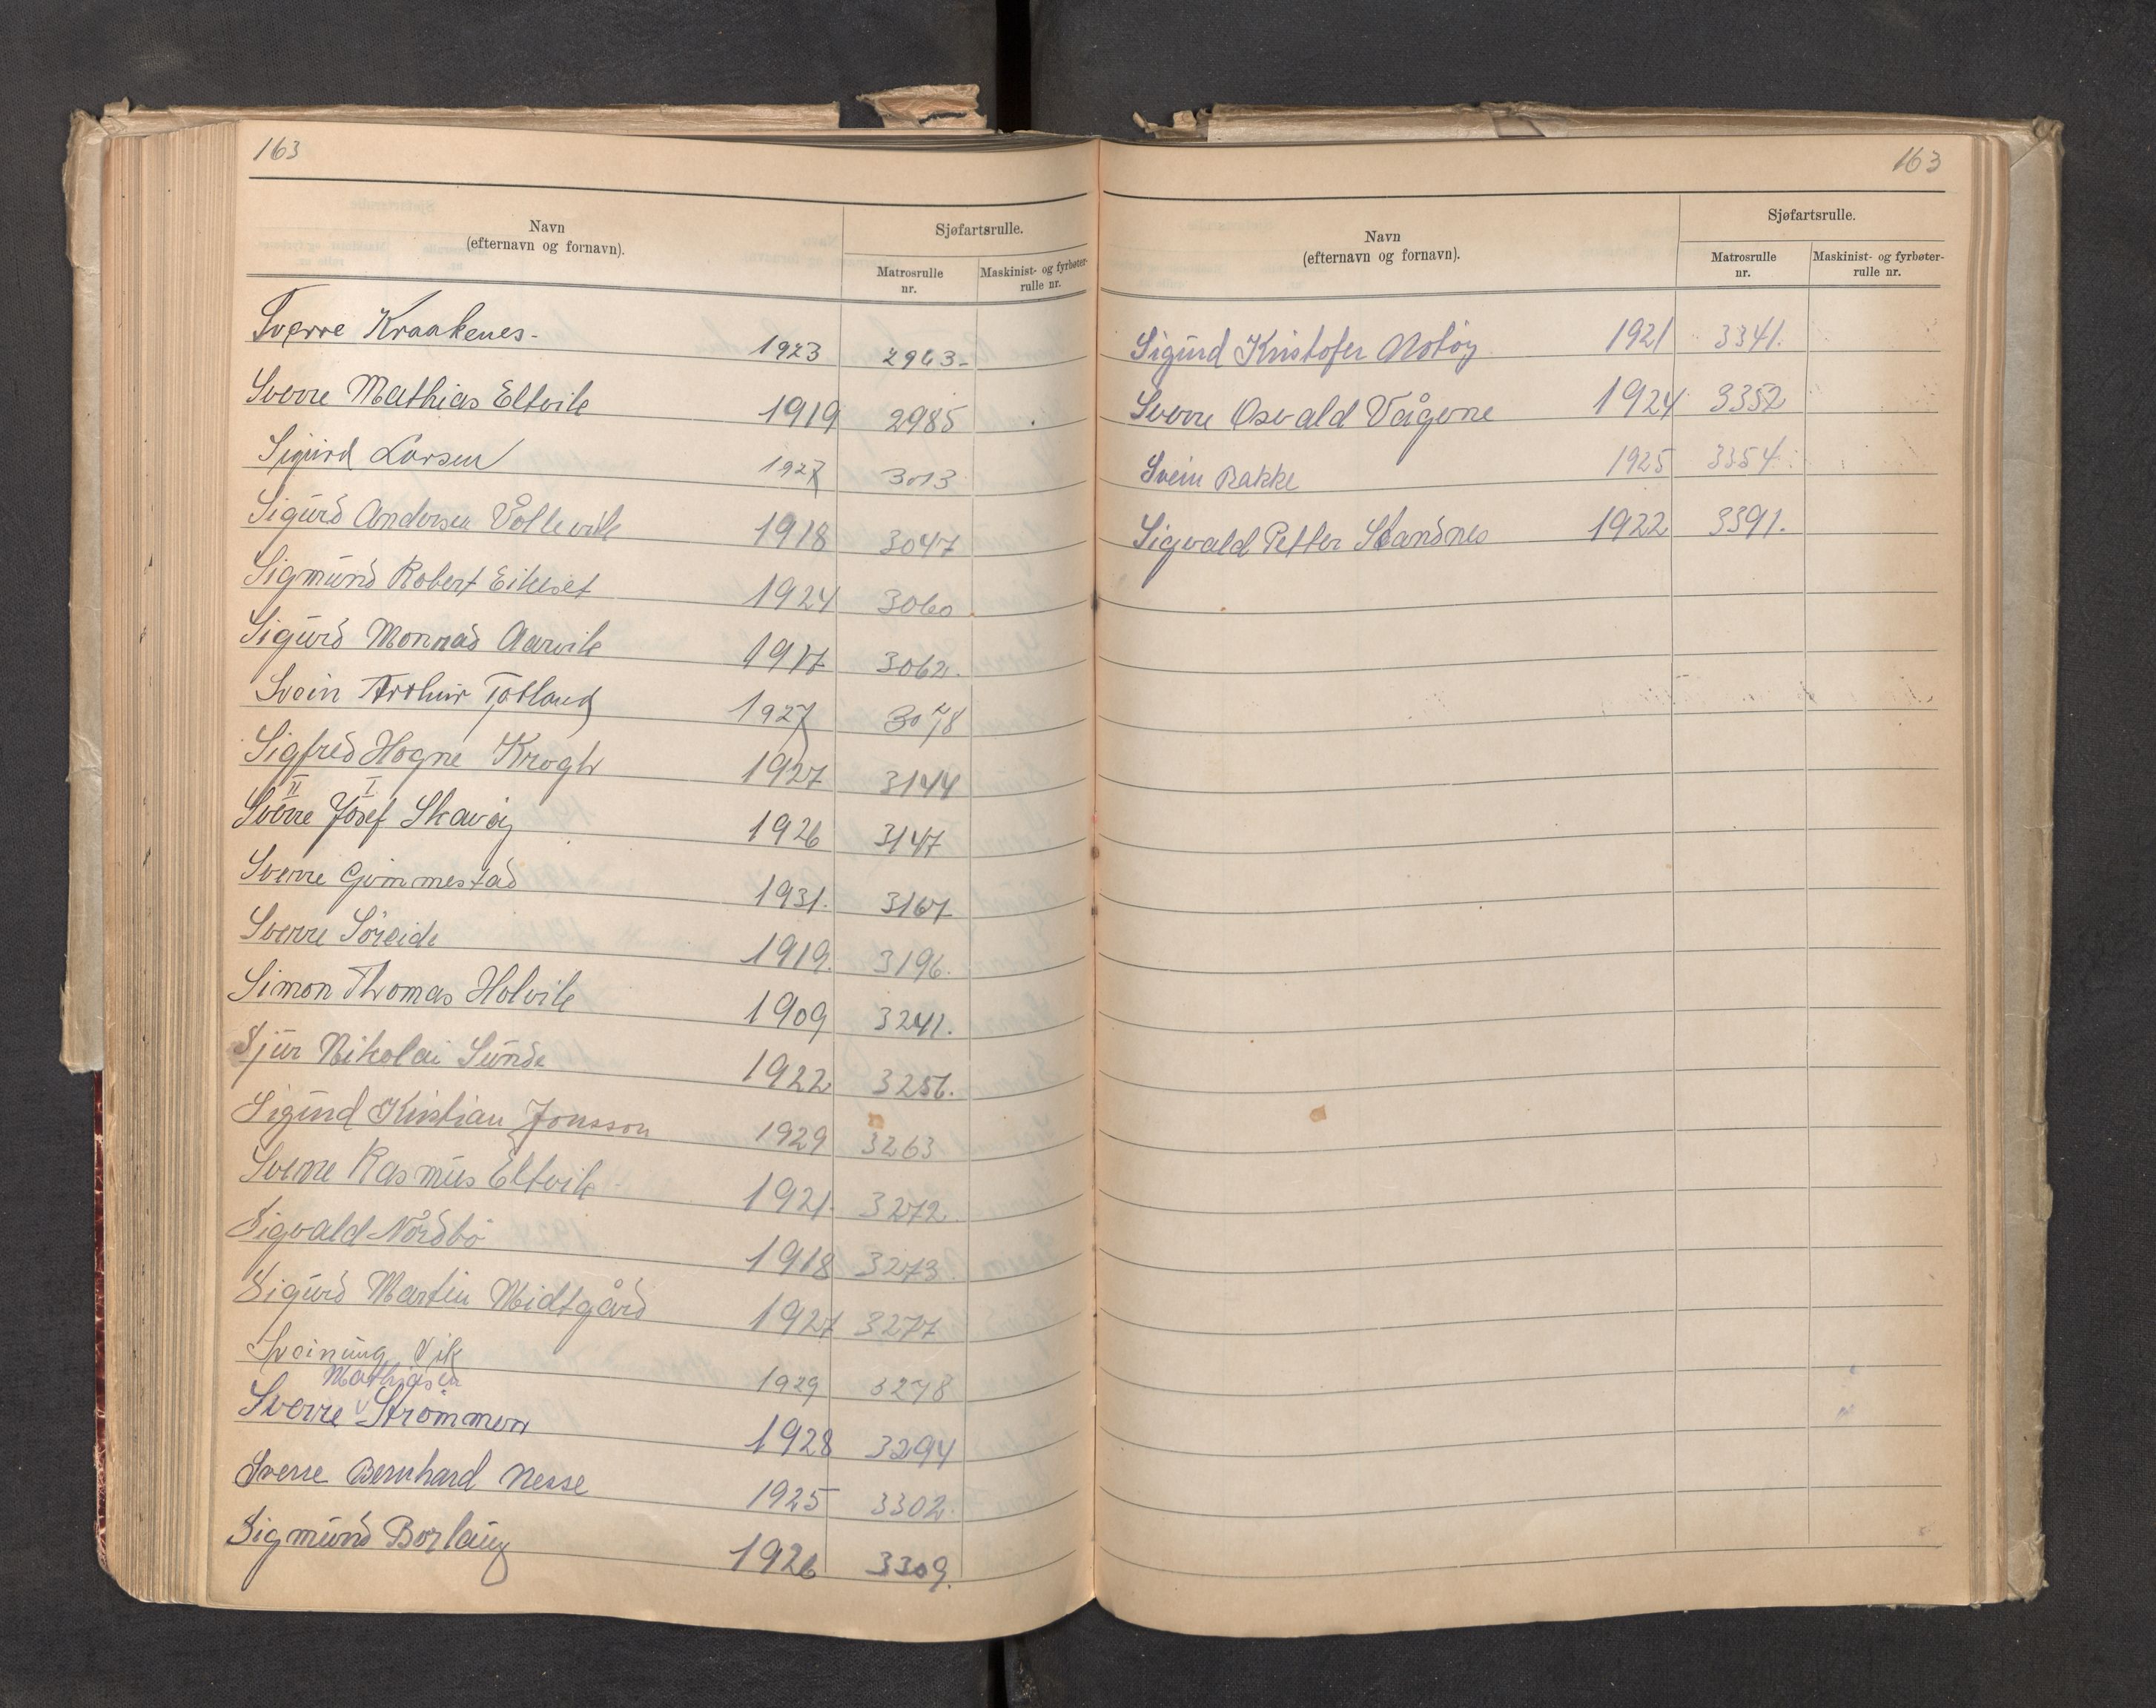 163
Navn
(efternavn og fornavn).
Sjøfartsrulle.
Matrosrulle
nr.
Maskinist- og fyrbøter-
rulle nr.
Sverre Kraakenes - 1923 2963 -
Sverre Mathias Eltvik 1919 2985
Sigurd Larsen 1927 3013
Sigurd Andersen 1918 3047
Sigmund Robert Eikeset 1924 3060
Sigurd Monrad Aarvik 1917 3062.
Svein Arthur Totland 1927 3078
Sigfred Hogne Krogh 1927 3144
II I
Sverre Josef Skavøy 1926 3147
Sverre Gimmestad 1931. 3167
Sverre Söreide 1919. 3196.
Simon Thomas Holvik 1909 3241.
Sjur Nikolai Sunde 1922 3256.
Sigurd Kristian Jonsson 1929 3263
Sverre Rasmus Eltvik 1921. 3272.
Sigvald Nordbö 1918 3273.
Sigurd Martin Midtgård 1927 3277
Sveinung Vik 1929 3278
Mathiasen
Sverre Strömmen 1928 3294
Sverre Bernhard Nesse 1925 3302.
Sigmund Borlaug 1926 3309.
163
Navn
(efternavn og fornavn).
Sjøfartsrulle.
Matrosrulle
nr.
Maskinist- og fyrbøter-
rulle nr.
Sigurd Kristofer 1921 3341.
Sverre Osvald Vågene 1924 3352
Svein Bakke 1925 3354.
Sigvald Petter Standnes 1922 3391.